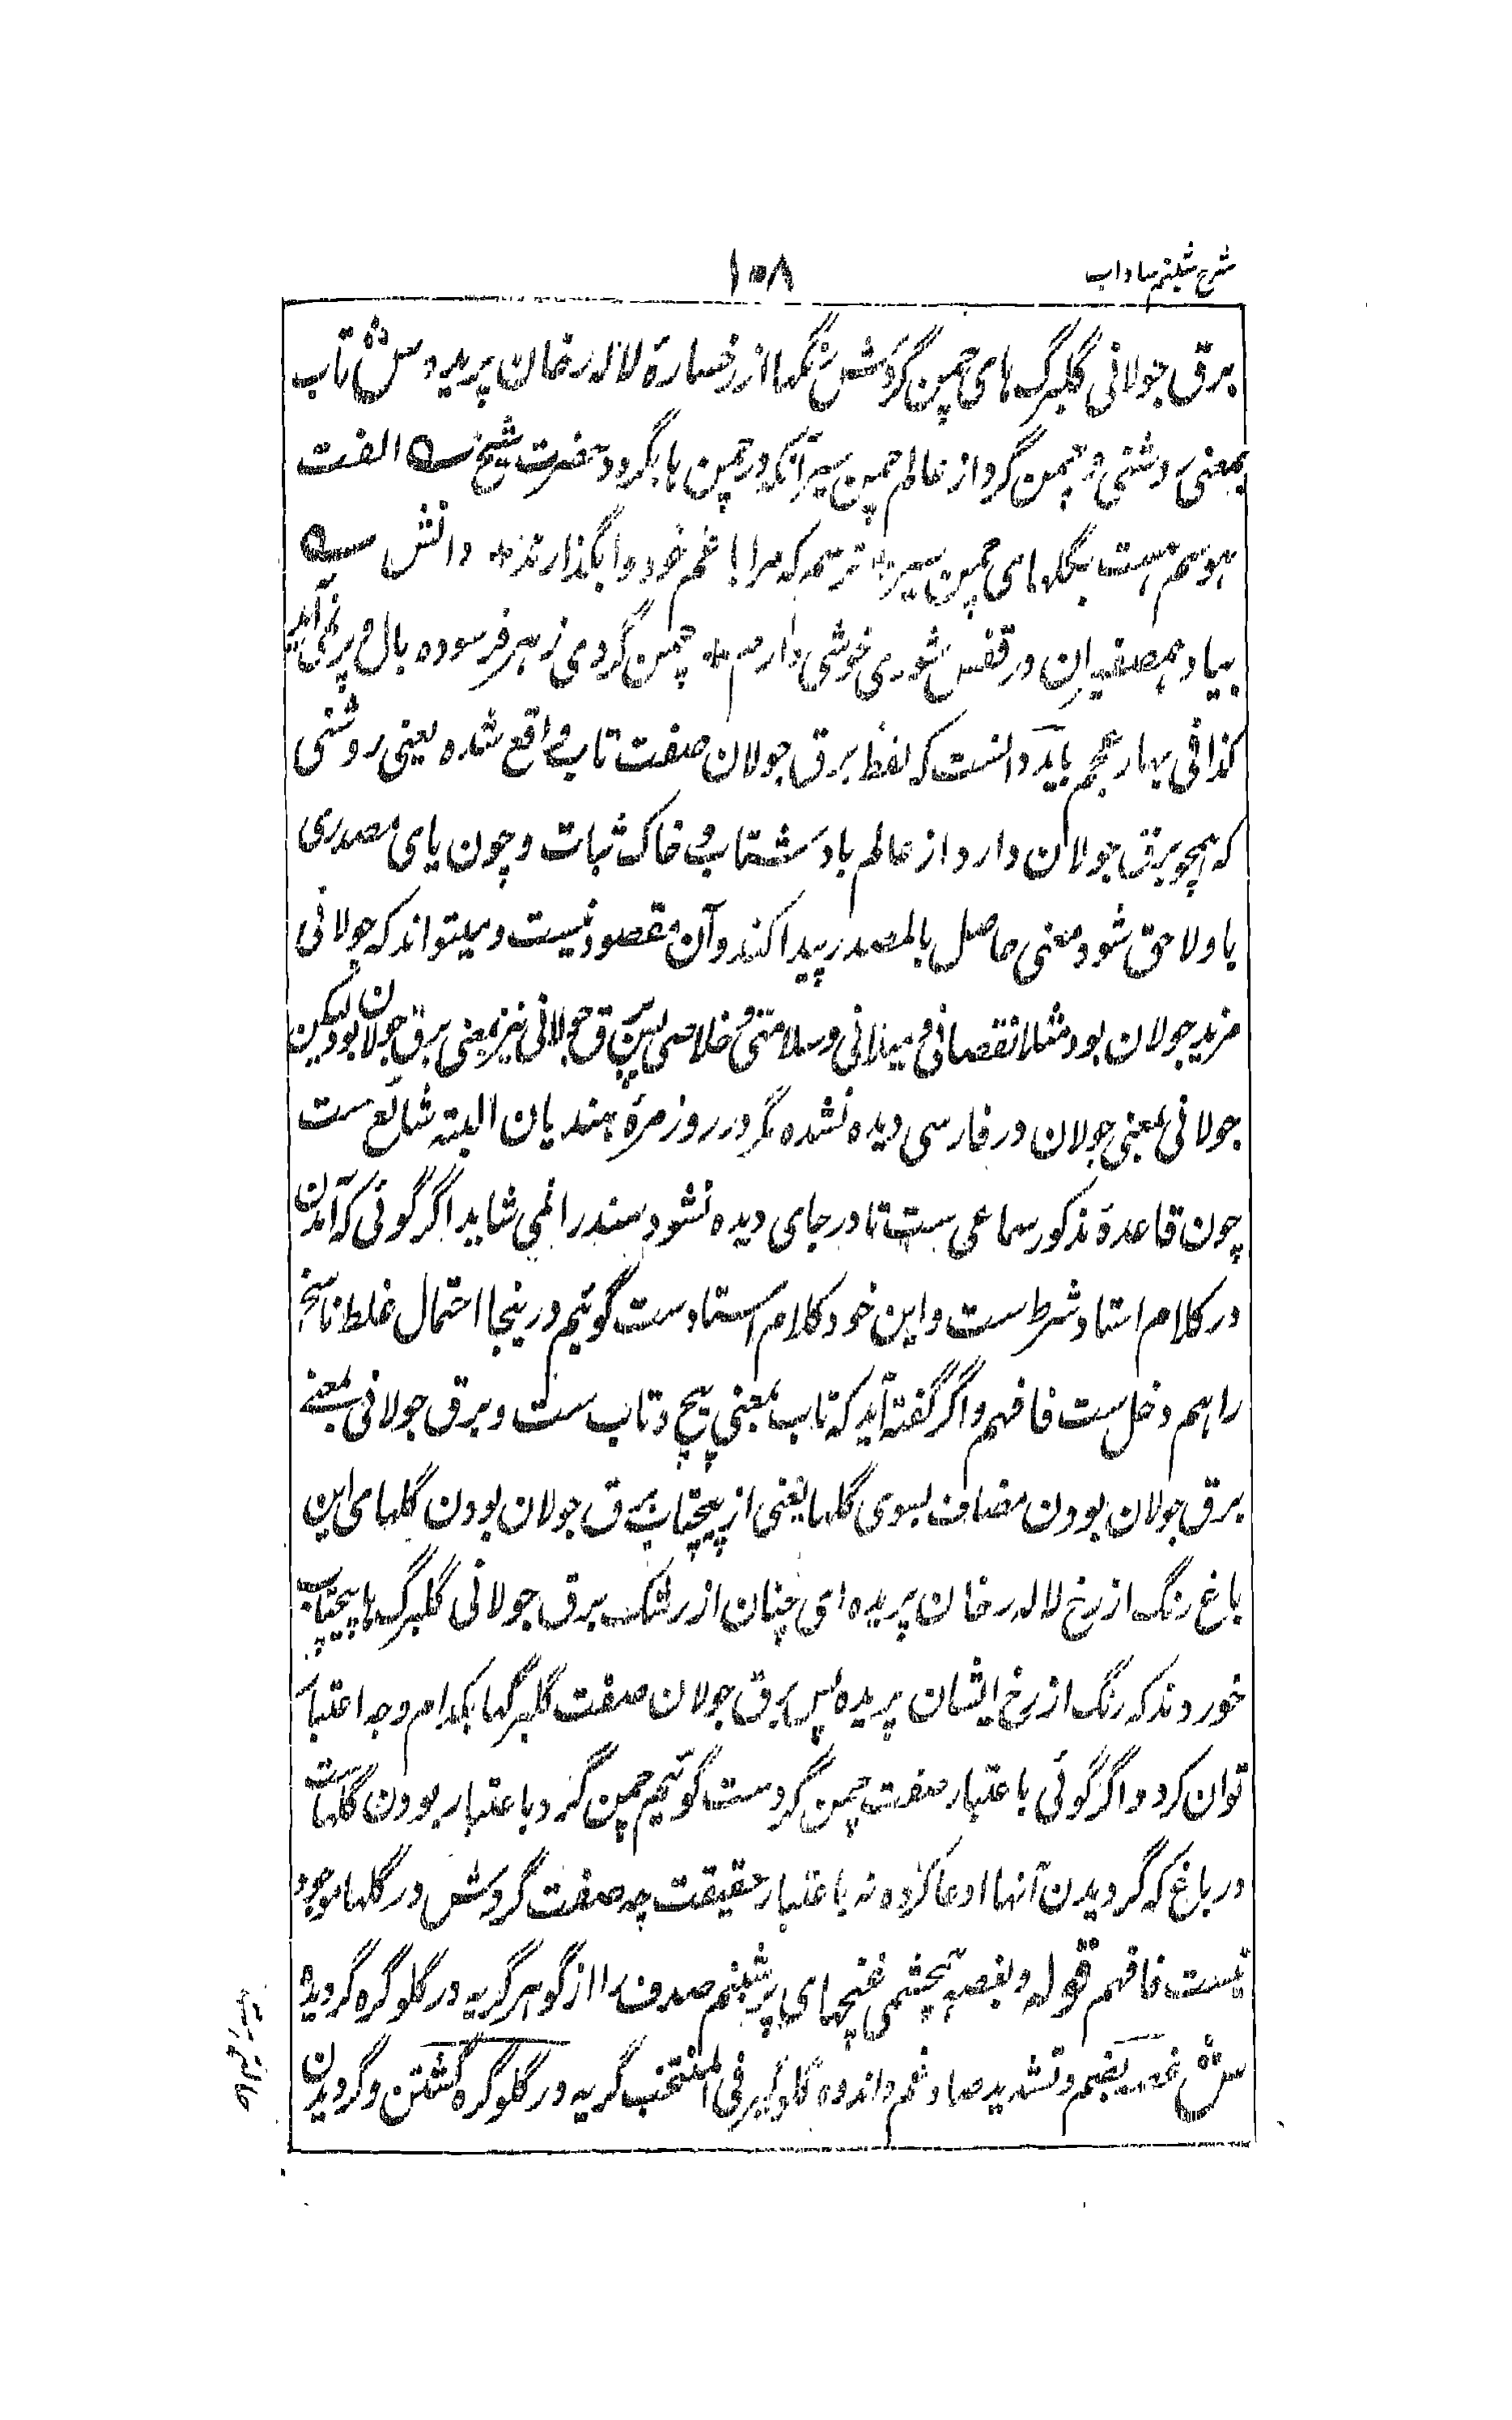 شرح شبنم شاداب
۱۰۸
برق جولانی گلبرگ های چمن گردش رنگها از رخساره لاله رخان پریده ش تاب
بمعنی روشنی و چمن گرد از عالم چمن سیر آنکه در چمن ها بگردد حضرت شیخ الفت
هوسم هست بگلهای چمن سیر ترسم که مرا با غم خود وا بگذارند دانش
بیاد همصفیران در قفس شوری خوشی دارم چمن گردی ز هر فرسوده بال و پر نمی آید
کذا فی بهار عجم باید دانست که لفظ برق جولان صفت تاب واقع شده یعنی روشنی
که همچو برق جولان دارد از عالم باد شتاب و خاک ثبات و چون یای مصدری
باو لاحق شود معنی حاصل بالمصدر پیدا کند و آن مقصود نیست و میتواند که جولانی
مزید جولان بود مثلا نقصانی و میلانی و سلامتی و خلاصی پس برق جولانی نیز بمعنی برق جولان بود لیکن
جولانی بمعنی جولان در فارسی دیده نشده مگر در روزمره هندیان البته شائع ست
چون قاعده مذکور سماعی ست تا در جای دیده نشود سند را نمی شاید اگر گوئی که آمدن
در کلام استاد شرط ست و این خود کلام استاد ست گوئیم درینجا احتمال غلط ناسخ
را هم دخل ست فافهم و اگر گفته آید که تاب بمعنی پیچ و تاب ست و برق جولانی بمعنے
برق جولان بودن مضاف بسوی گلها یعنی از پیچتاب برق جولان بودن گلهای این
باغ رنگ از رخ لاله رخان پریده ای چنان از رشک برق جولانی گلبرگ ها پیچتاب
خوردند که رنگ از رخ ایشان پریده پس برق جولان صفت گلبرگها بکدام وجه اعتبار
توان کرد و اگر گوئی باعتبار صفت چمن گردست گوئیم چمن گرد باعتبار بودن گلهاست
در باغ که گردیدن آنها ادعا کرده نه باعتبار حقیقت چه صفت گردش در گلها موجود
نیست فافهم قوله و بغصه همچشمی غنچهای پر شبنم صدف را از گوهر گریه در گلو گره گردیده
ش غصه بضم و تشدید صاد غم و اندوه گلوگیر فی المنتخب گریه در گلو گره گشتن و گردیدن